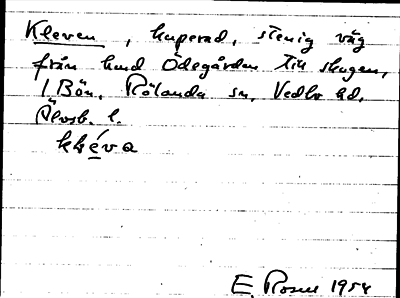 Kleven, kuperad, stenig väg
från hmd Ödegården till skogen,
1 Bön. Rölanda sn, Vedbo hd.
Älvsb. l.
kléva
E. Rosen 1958